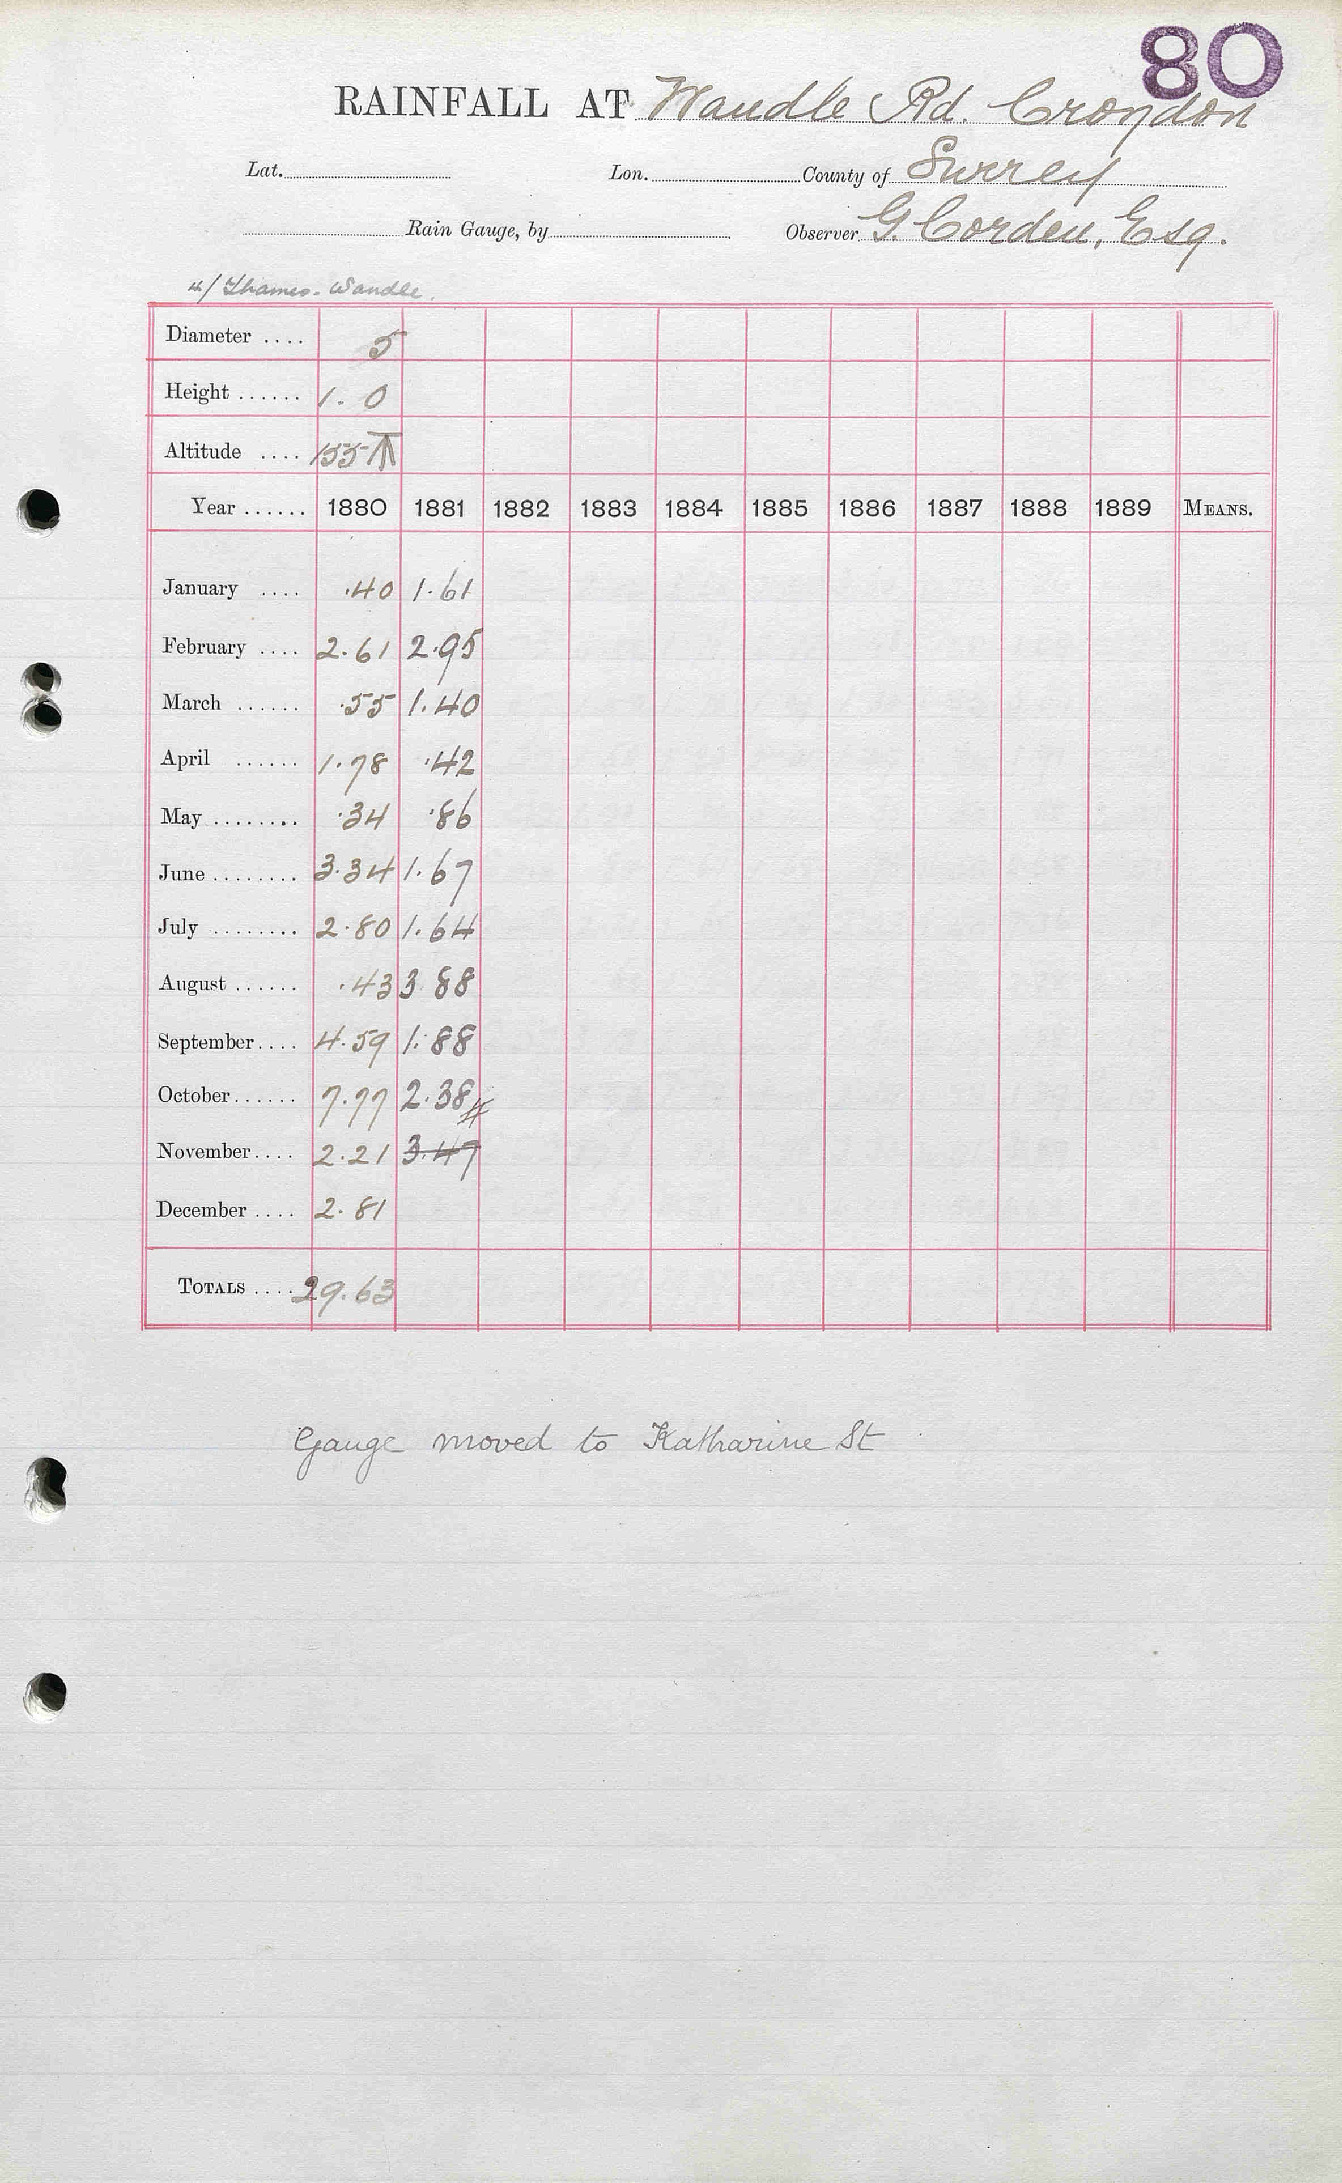 80
RAINFALL AT Wandle Rd. Croydon
Lat. Lon. County of Surrey
Rain Gauge, by Observer G. Corden, Esq.
4/ Thames-Wandle.
Diameter .... 5
Height ...... 1. 0
Altitude .... 155
Year ...... 1880 1881 1882 1883 1884 1885 1886 1887 1888 1889 MEANS.
January .... .40 1.61
February .... 2.61 2.95
March ...... .55 1.40
April ...... 1.78 .42
May ........ .34 .86
June ........ 3.34 1.67
July ........ 2.80 1.64
August ...... .43 3.88
September .... 4.59 1.88
October ...... 7.77 2.38
November .... 2.21 3.47
December .... 2.81
TOTALS .... 29.63
Gauge moved to Katharine St